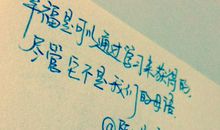 幸福是可以通过学习来获得的,
尽管它不是我们的母语.
@